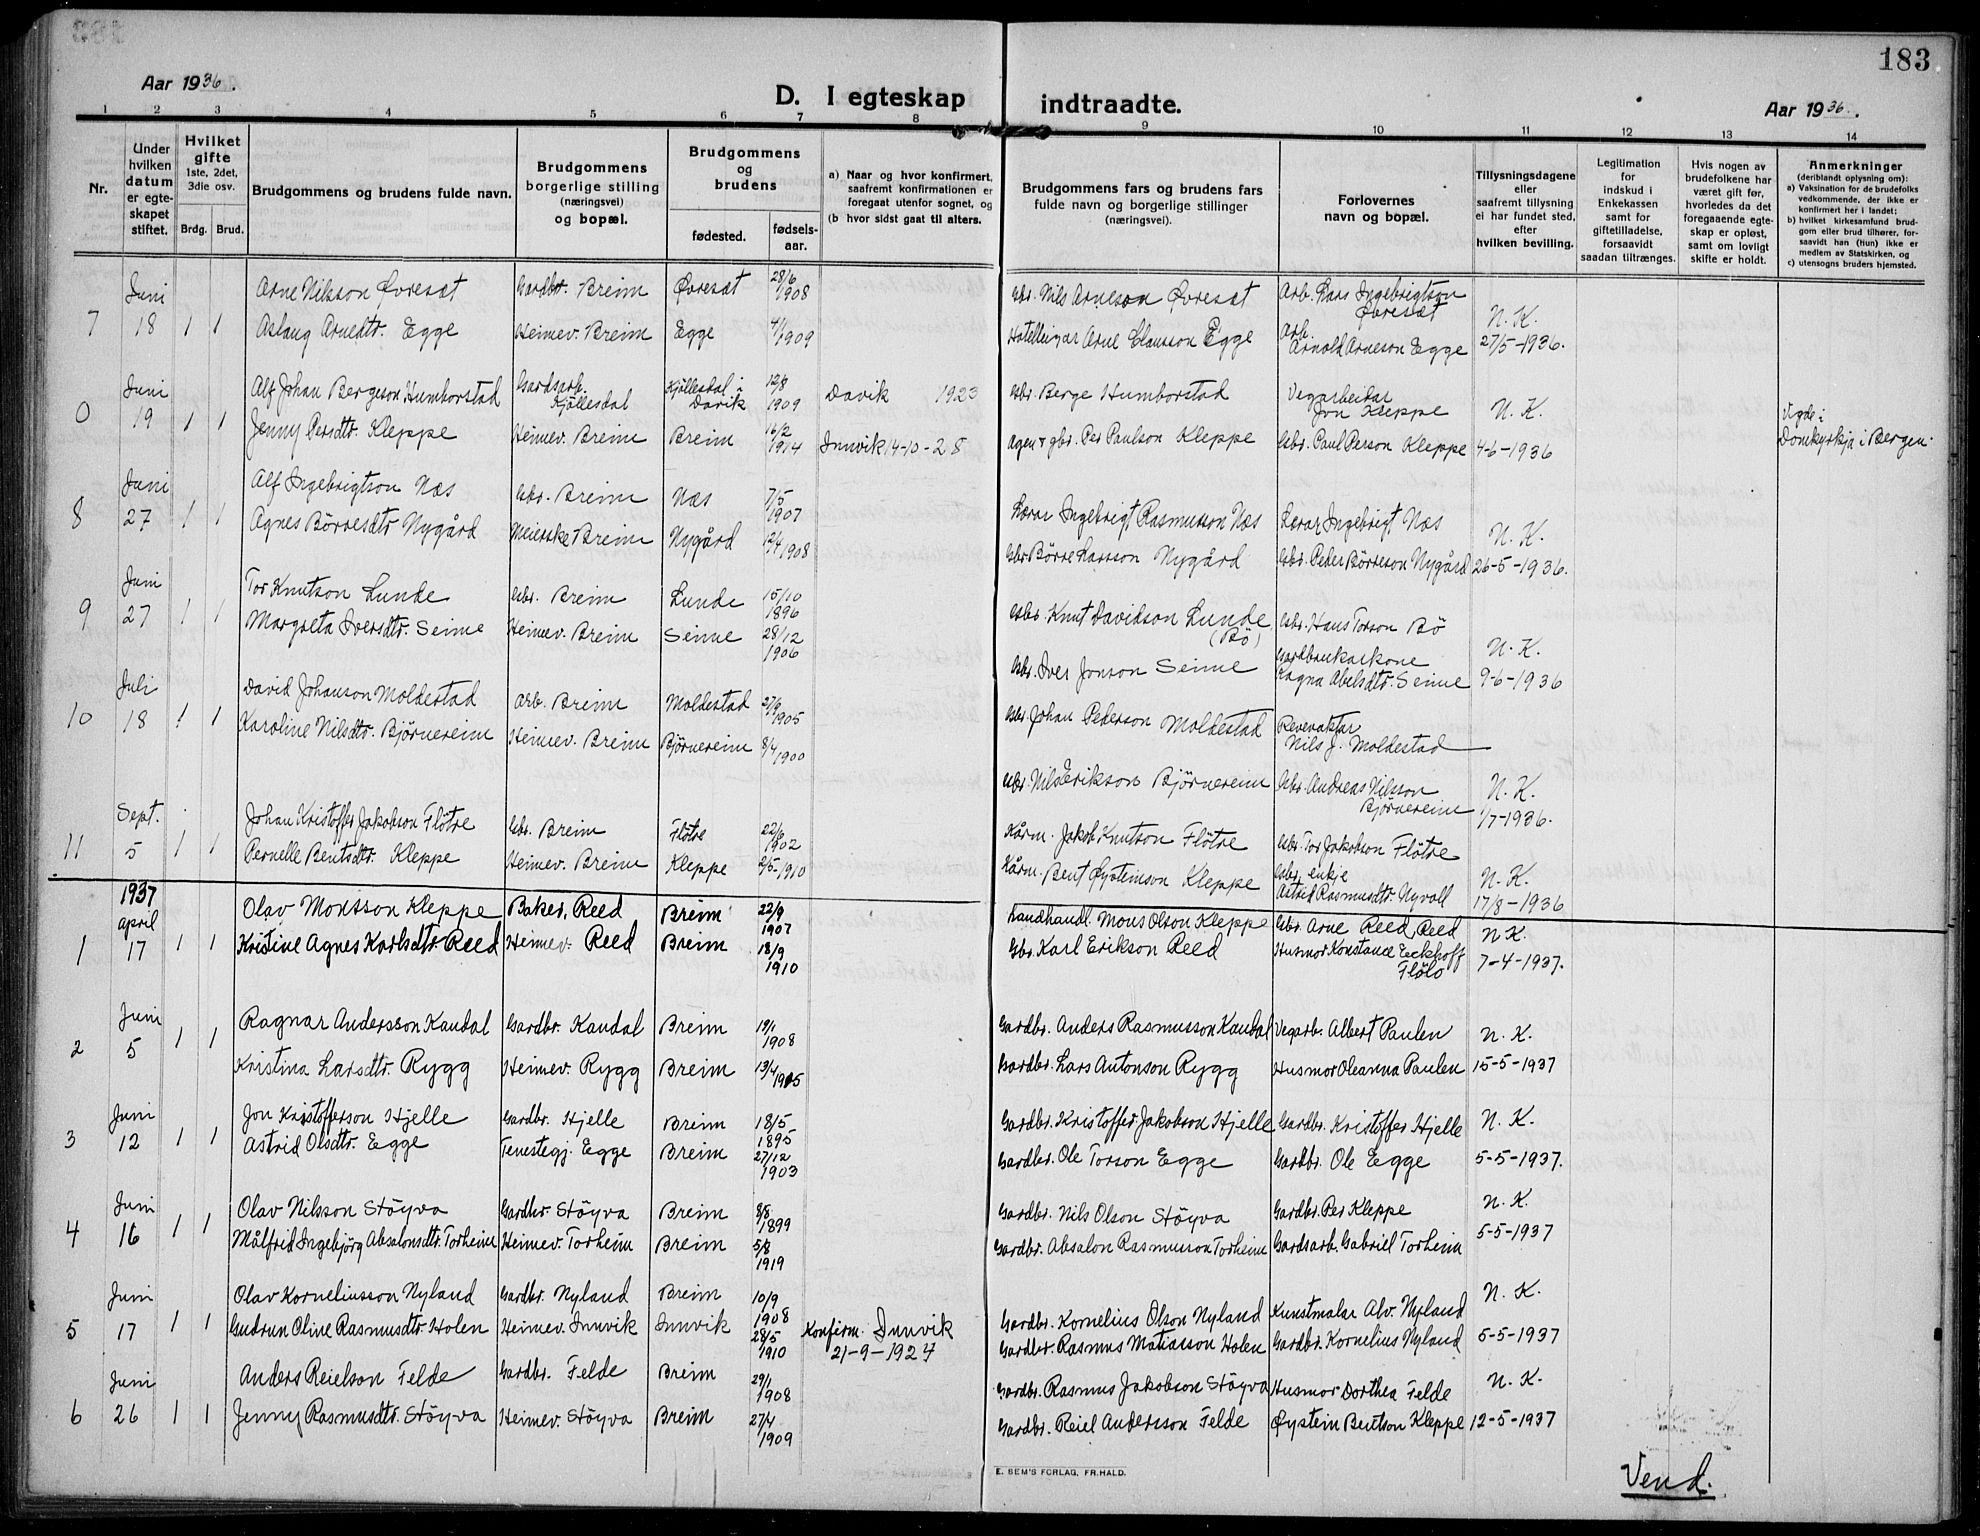 183
Aar 1936.
D. I egteskap indtraadte.
Aar 1936.
1 2 3 4 5 6 7 8 9 10 11 12 13 14
Nr.
Under hvilken datum er egteskapet stiftet.
Hvilket gifte 1ste, 2det, 3die osv.
Brdg. Brud.
Brudgommens og brudens fulde navn.
Brudgommens borgerlige stilling (næringsvei) og bopæl.
Brudgommens og brudens
fødested. fødselsaar.
a) Naar og hvor konfirmert, saafremt konfirmationen er foregaat utenfor sognet, og
(b hvor sidst gaat til alters.
Brudgommens fars og brudens fars fulde navn og borgerlige stillinger (næringsvei).
Forlovernes navn og bopæl.
Tillysningsdagene eller saafremt tillysning ei har fundet sted, efter hvilken bevilling.
Legitimation for indskud i Enkekassen samt for giftetilladelse, forsaavidt saadan tiltrænges.
Hvis nogen av brudefolkene har været gift før, hvorledes da det foregaaende egteskap er opløst, samt om lovligt skifte er holdt.
Anmerkninger (deriblandt oplysning om):
a) Vaksination for de brudefolks vedkommende, der ikke er konfirmert her i landet;
b) hvilket kirkesamfund brudgom eller brud tilhører, forsaavidt han (hun) ikke er medlem av Statskirken, og
c) utensogns bruders hjemsted.
7 Juni 18 1 1 Arne Nilsson Øvreset Gardbr. Breim Øvreset 28/6 1908 Gbr. Nils Arneson Øvreset Arb. Lars Ingebrigtson Øvreset N. K.
Aslaug Arnedtr. Egge Heimev. Breim Egge 4/1 1909 Hotelleigar Arne Clausson Egge Arb. Arnold Arneson Egge 27/5-1936.
0 Juni 19 1 1 Alf Johan Bergeson Humborstad Gardsarb. Kjöllesdal Kjöllesdal i Davik 12/8 1909 Davik 1923 Gbr. Berge Humborstad Vegarbeidar Jon Kleppe N. K. Vigde i
Jenny Persdtr. Kleppe Heimev. Breim Breim 16/2 1914 Innvik 14-10-28 Agent gbr. Per Paulson Kleppe Gbr. Paul Person Kleppe 4-6-1936 Domkyrkja i Bergen.
8 Juni 27 1 1 Alf Ingebrigtson Næs Gbr. Breim Næs 7/5 1907 Lærar Ingebrigt Rasmusson Næs Lærar Ingebrigt Næs N. K.
Agnes Börresdtr Nygård Meierske Breim Nygård 12/4 1908 Gbr Börre Larsson Nygård Gbr. Peder Börreson Nygård 26-5-1936.
9 Juni 27 1 1 Tor Knutson Lunde Gbr. Breim Lunde 15/10 1896 Gbr. Knut Davidson Lunde (Bö) Gbr. Hans Torson Bö N. K.
Margreta Iversdtr. Seime Heimev. Breim Seime 28/12 1906 Gbr. Iver Jonson Seime Gardbrukarkone Ragna Abelsdtr. Seime 9-6-1936
10 Juli 18 1 1 David Johanson Moldestad Arb. Breim Moldestad 27/9 1905 Gbr. Johan Pederson Moldestad Revevaktar Nils J. Moldestad
Karoline Nilsdtr. Björnereim Heimev. Breim Björnereim 8/4 1900 Gbr. Nils Erikson Björnereim Gbr. Andreas Nilsson Björnereim N. K. 1/7-1936.
11 Sept. 5 1 1 Johan Kristoffer Jakobson Flötre Gbr. Breim Flötre 22/6 1902 Kårm. Jakob Knutson Flötre Gbr. Tor Jakobson Flötre
Pernelle Bentsdtr. Kleppe Heimev. Breim Kleppe 2/5-1910 Kårm. Bent Øysteinson Kleppe Gbr. enkje Astrid Rasmusdtr. Nyvoll N. K. 17/8-1936
1937
1 April 17 1 1 Olav Monsson Kleppe Baker, Reed Breim 22/9 1907 Landhandl. Mons Olson Kleppe Gbr. Arne Reed, Reed N K.
Kristine Agnes Karlsdtr. Reed Heimev. Reed Breim 18/9 1910 Gbr. Karl Erikson Reed Husmor Konstance Eeckhoff Flölo 7-4-1937.
2 Juni 5 1 1 Ragnar Andersson Kandal Gardbr. Kandal Breim 19/1 1908 Gardbr. Anders Rasmusson Kandal Vegarb. Albert Paulen N. K.
Kristina Larsdtr. Rygg Heimev. Rygg Breim 13/4 1905 Gardbr. Lars Antonson Rygg Husmor Oleanna Paulen 15-5-1937
3 Juni 12 1 1 Jon Kristofferson Hjelle Gardbr. Hjelle Breim 18/5 1895 Gardbr. Kristoffer Jakobson Hjelle Gardbr. Kristoffer Hjelle N. K.
Astrid Olsdtr. Egge Tenestegj. Egge Breim 27/12 1903 Gardbr. Ole Torson Egge Gardbr. Ole Egge 5-5-1937.
4 Juni 16 1 1 Olav Nilsson Stöyva Gardbr. Stöyva Breim 8/8 1899 Gardbr. Nils Olson Stöyva Gardbr. Per Kleppe N. K.
Målfrid Ingebjörg Absalonsdtr. Torheim Heimev. Torheim Breim 5/8 1919 Gardbr. Absalon Rasmusson Torheim Gardsarb. Gabriel Torheim 5-5-1937
5 Juni 17 1 1 Olav Korneliusson Nyland Gardbr. Nyland Breim 10/9 1908 Gardbr. Kornelius Olson Nyland Kunstmalar Alv. Nyland N. K.
Gudrun Oline Rasmusdtr. Holen Heimev. Innvik Innvik 28/5 1910 Konfirm. Innvik 21-9-1924 Gardbr. Rasmus Matiasson Holen Gardbr. Kornelius Nyland 5-5-1937
6 Juni 26 1 1 Anders Reielson Felde Gardbr. Felde Breim 29/1 1908 Gardbr. Rasmus Jakobson Stöyva Husmor Dorthea Felde N. K.
Jenny Rasmusdtr. Stöyva Heimev. Stöyva Breim 27/4 1909 Gardbr. Reiel Andersson Felde Øystein Bentson Kleppe 12-5-1937
E. SEM'S FORLAG, FR.HALD.
Vend.